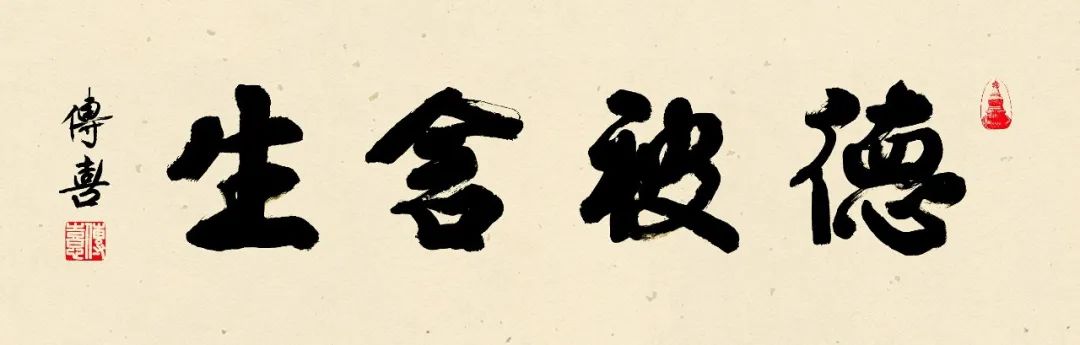 德被含生
傳喜
傳喜